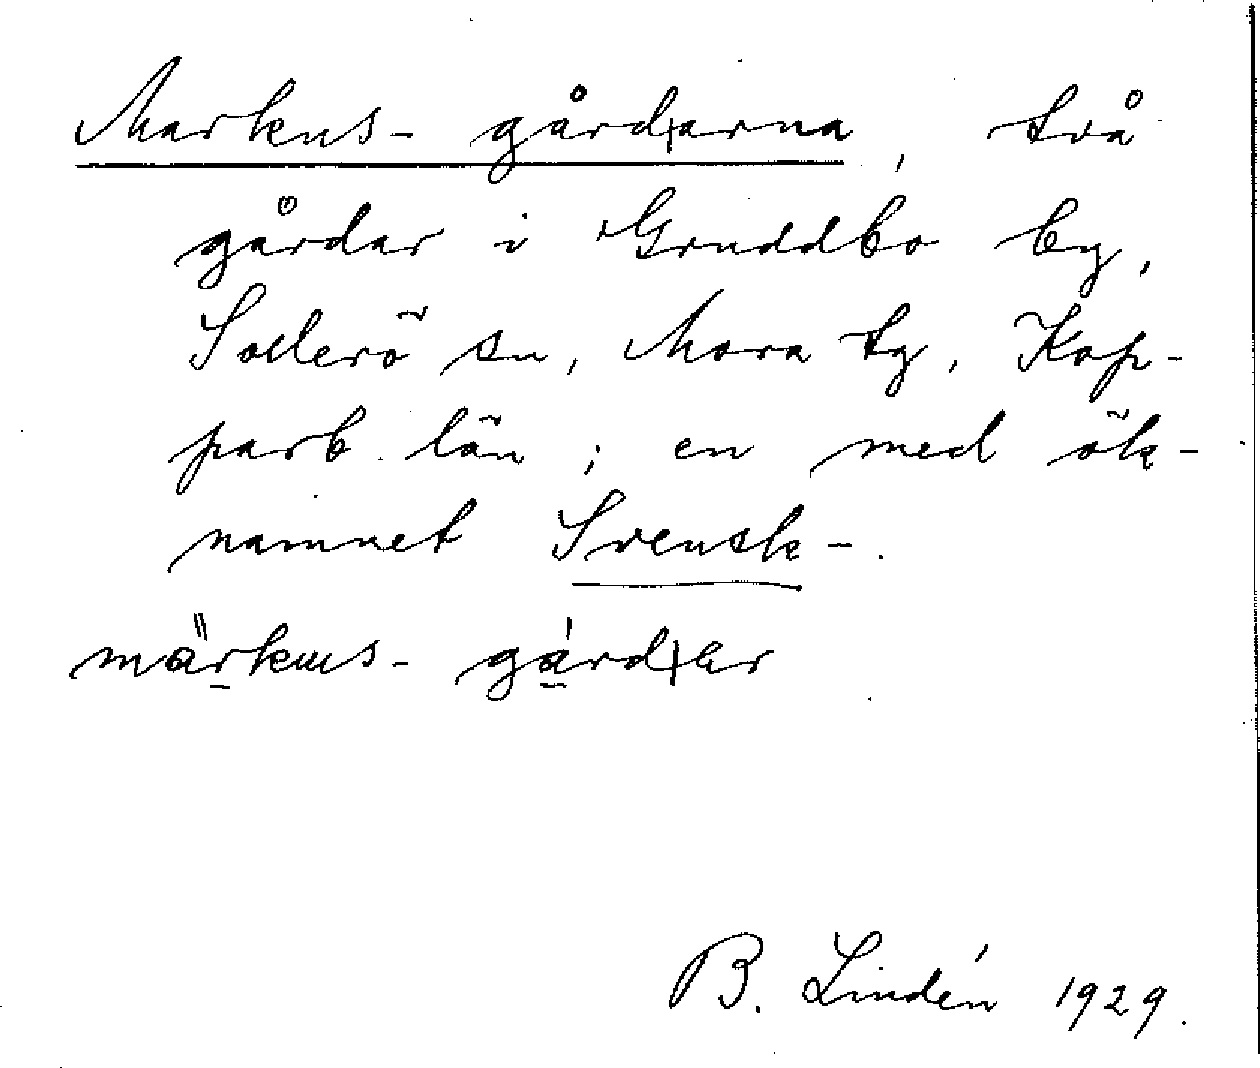 Markus-gård|arna, två
gårdar i Gruddbo by,
Sollerö sn, Mora tg, Kop-
parb. län; en med ök-
namnet Svensk-.
märkus- gård|ar
B. Lindén 1929.